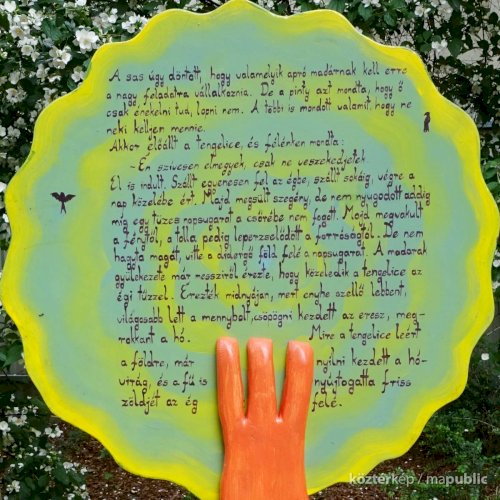 A sas úgy döntött, hogy valamelyik apró madárnak kell erre
a nagy feladatra vállalkoznia. De a pinty azt mondta, hogy ő
csak énekelni tud, lopni nem. A többi is mondott valamit, hogy ne
neki kelljen mennie.
Akkor előállt a tengelice, és félénken mondta:
- Én szívesen elmegyek, csak ne veszekedjetek.
El is indult. Szállt egyenesen fel az égbe, szállt sokáig, végre a
nap közelébe ért. Majd megsült szegény, de nem nyugodott addig
míg egy tüzes napsugarat a csőrébe nem fogott. Majd megvakult
a fénytől, a tolla pedig leperzselődött a forróságtól. De nem
hagyta magát, vitte a didergő föld felé a napsugarat. A madarak
gyülekezete már messziről érezte, hogy közeledik a tengelice az
égi tűzzel. Érezték mindnyájan, mert enyhe szellő lebbent,
világosabb lett a mennybolt, csöpögni kezdett az eresz, meg-
rokkant a hó. Mire a tengelice leért
a földre, már nyílni kezdett a hó-
virág, és a fű is nyújtogatta friss
zöldjét az ég felé.
köztérkép / mapublic